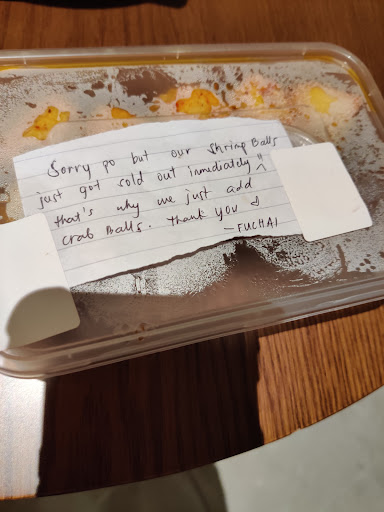 Sorry po but our Shrimp Balls
just got sold out inmediately !!
that's why we just add
crab Balls. Thank you
— FUCHAI